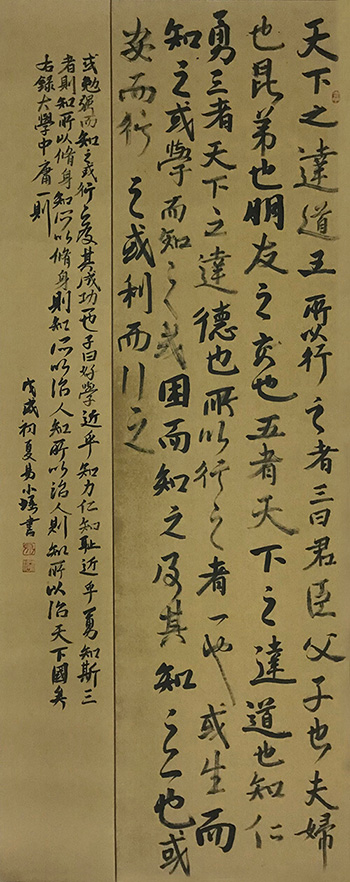 天下之達道五所以行之者三曰君臣父子也夫婦
也昆弟也朋友之交也五者天下之達道也知仁
勇三者天下之達德也所以行之者一也或生而
知之或學而知之或困而知之及其知之一也或
安而行之或利而行之
或勉强而知之或行之及其成功一也子曰好學近乎知力仁知耻近乎勇知斯三
者則知所以脩身知所以脩身則知所以治人知所以治人則知所以治天下國矣
右錄大學中庸一則
戊戌初夏易小書